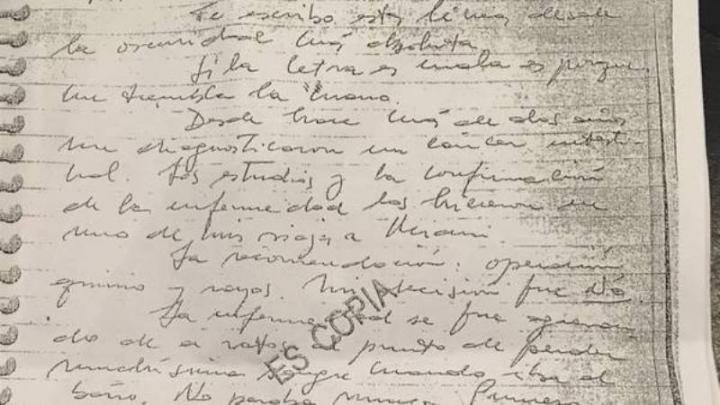 Te escribo estas líneas desde
la oscuridad más absoluta.
Si la letra es mala es porque
me tiembla la mano.
Desde hace más de dos años
me diagnosticaron un cáncer intesti-
nal. Los estudios y la confirmación
de la enfermedad las hicieron en
uno de mis viajes a Miami.
La recomendación: operación
quimio y rayos. Mi decisión fue No.
La enfermedad se fue
do de a ratos al punto de perder
muchísima sangre cuando iba al
baño. No paraba nunca.
ES COPIA